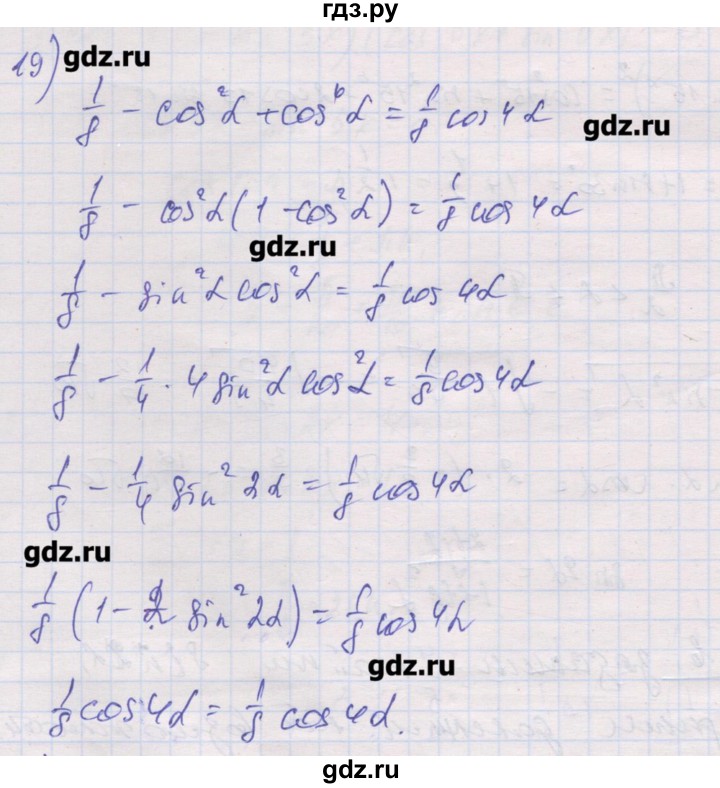 гдз.ру
19) gdz.ru
1/8 - cos²α + cos⁴α = 1/8 cos 4α
gdz.ru
1/8 - cos²α (1 - cos²α) = 1/8 cos 4α
gdz.ru
1/8 - sin²α cos²α = 1/8 cos 4α
1/8 - 1/4 · 4 sin²α cos²α = 1/8 cos 4α
1/8 - 1/4 sin²2α = 1/8 cos 4α
gdz.ru
1/8 (1 - 2 sin²2α) = 1/8 cos 4α
gdz.ru
1/8 cos 4α = 1/8 cos 4α.
gdz.ru